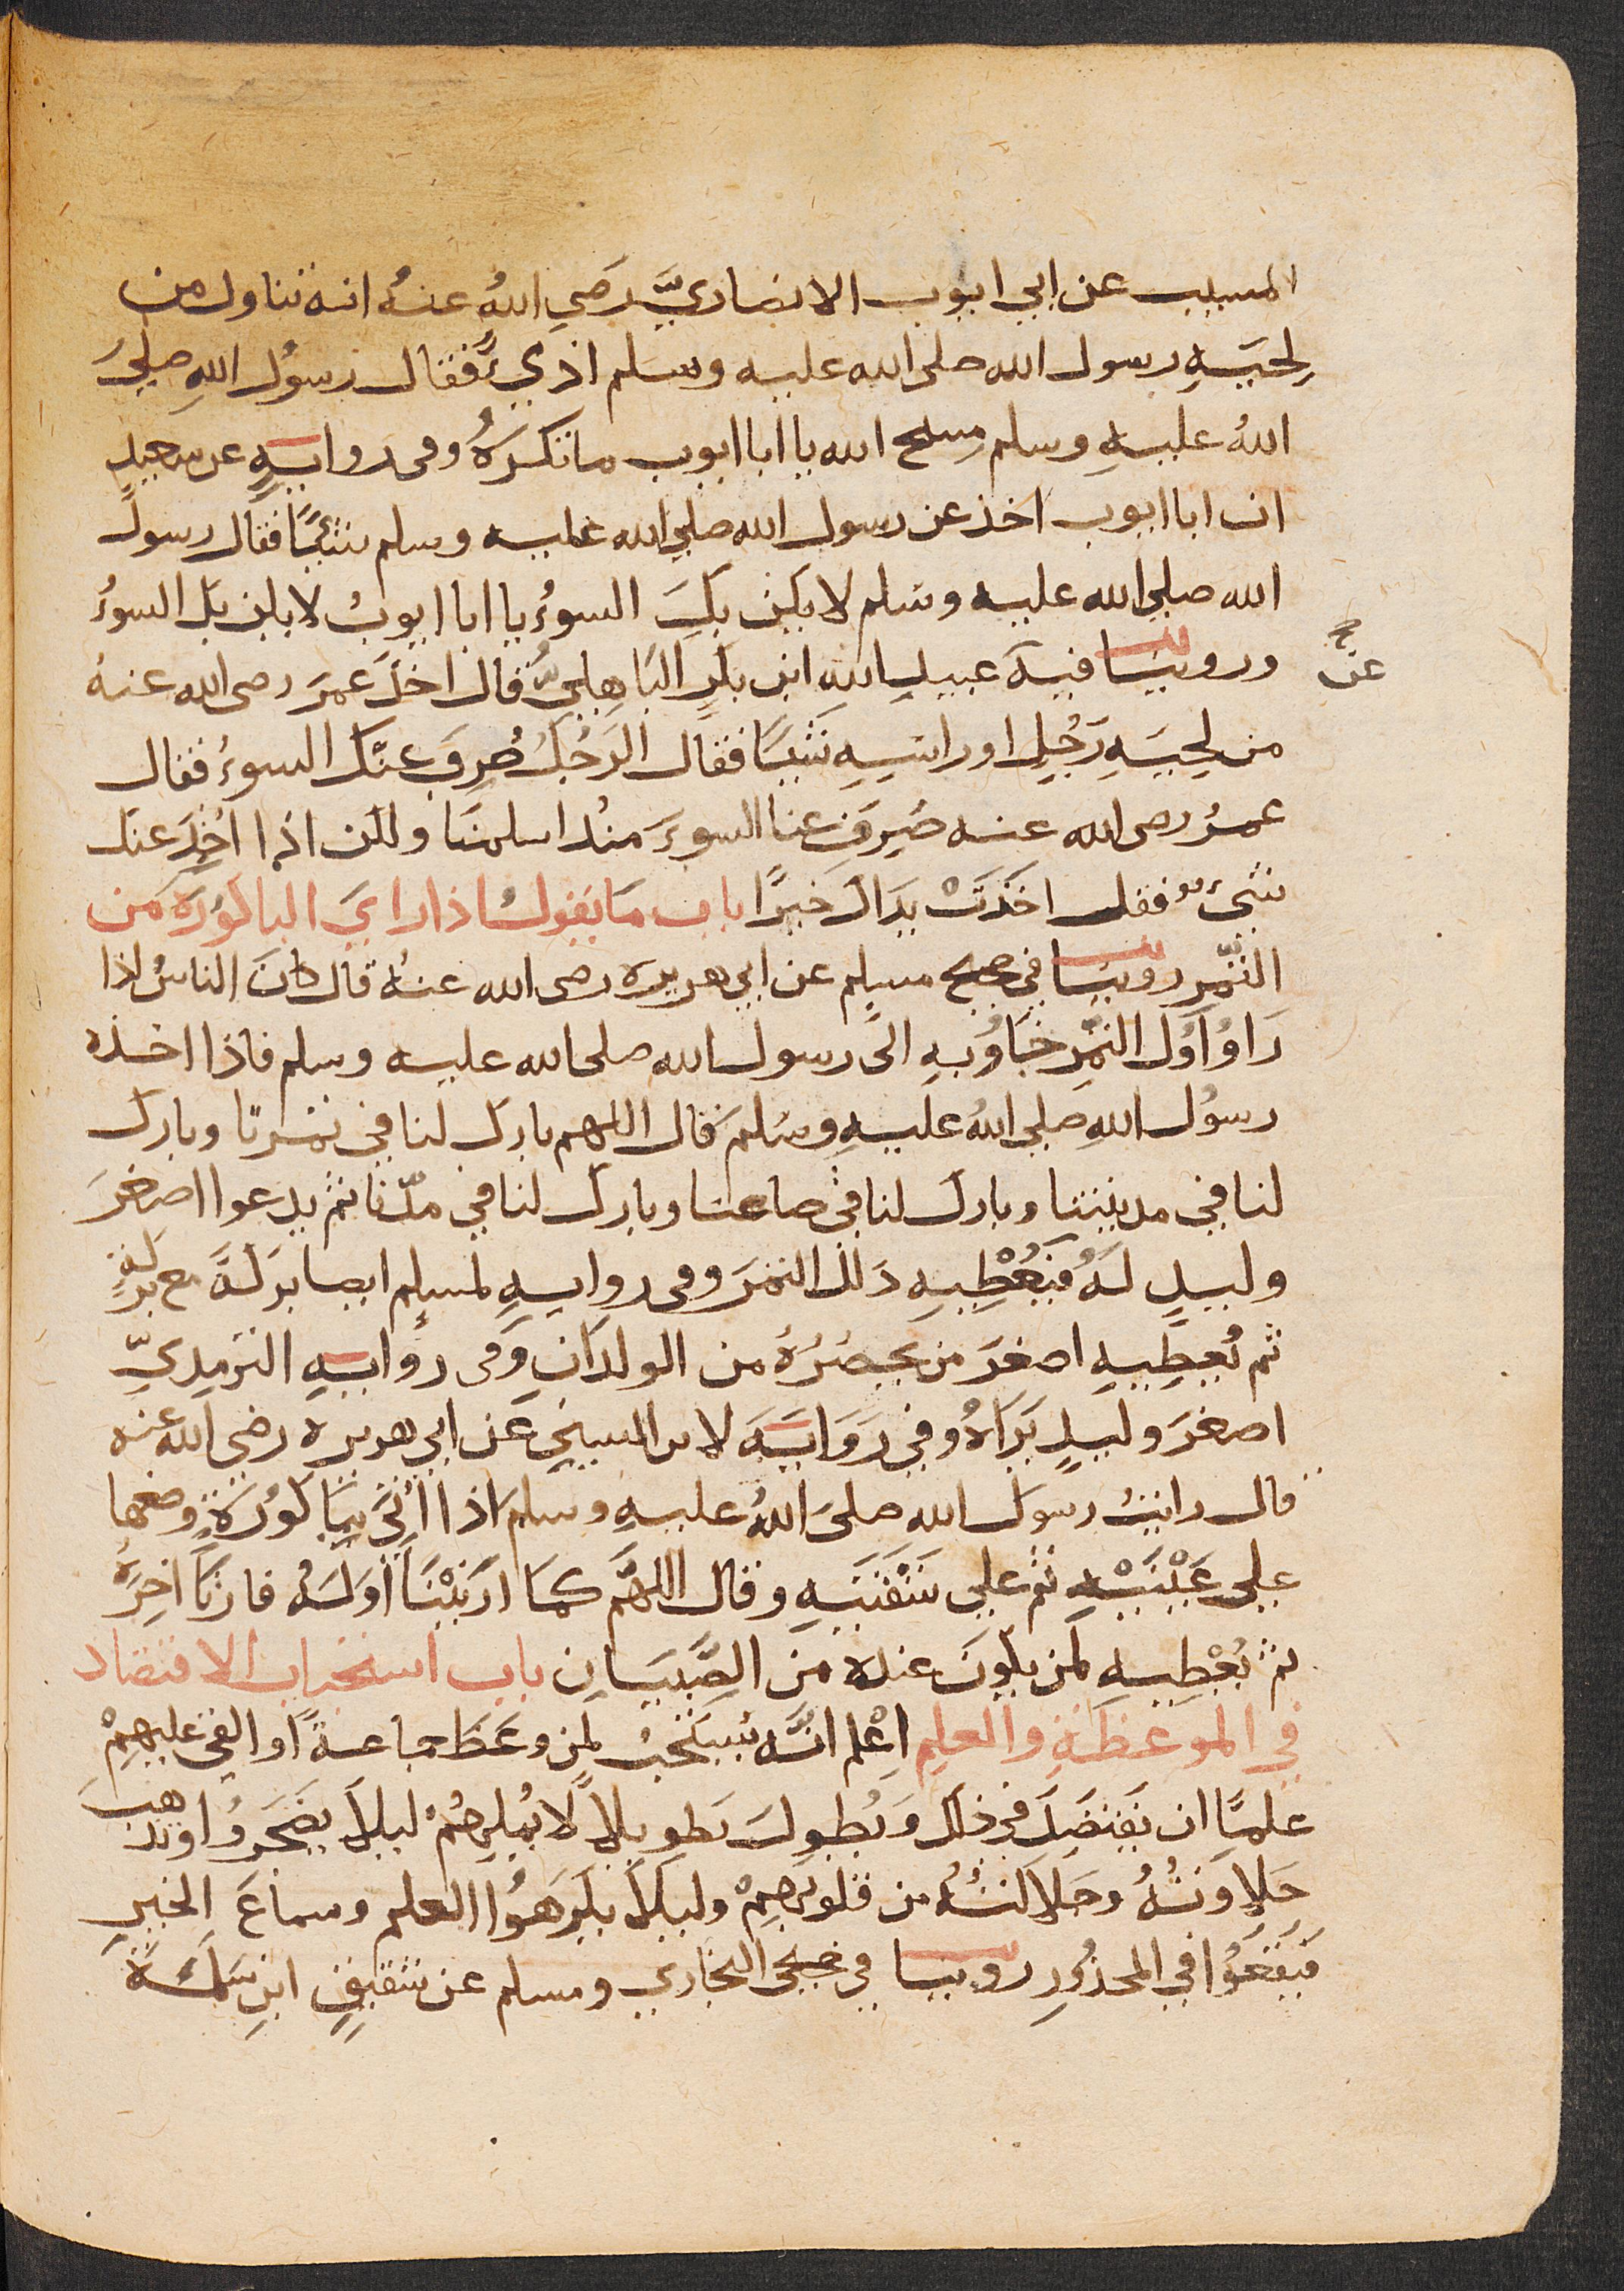 المسيب عن ابي ايوب الانصاريِّ رَضِي اللهُ عنهُ انه تناول من
لِحيَةِ رسول الله صلى الله عليه وسَلم اذيً فقال رسوُل اللهِ صلىَ
اللهُ عليهِ وسلم مسح الله يا ابا ايوب ما تكرَهُ وفى روايةٍ عن سعيدٍ
ان ابا ايوب اخذ عن رسول الله صلي الله عليه وسلم شيًا فقال رسول
الله صلي الله عليه وسَلم لا يكن بكَ السوءُ يا ابا ايوبُ لا يكن بك السوءُ
وروينا فيه عن عبيدِ الله ابن بكرٍ البَاهِليِّ قال اخذَ عمرَ رضى الله عنهُ
من لِحيَةِ رَجُلٍ او راسِهِ شيًا فقال الرَجُلُ صُرِفَ عنكَ السوءُ فقال
عمرُ رضى الله عنه صُرِفَ عنا السوءَ منذ اسلمنَا ولكن اذا اُخِذَ عنك
شيءٌ فقل اخذَتْ يدَاك خيرًا باب مَا يقول اذا راي الباكوُرَة من
الثمر روينا في صحيح مسلم عن ابي هريره رضى الله عنهُ قال كان الناسُ اذا
رَاوُا اوَّل الثمرِ جَاوُبهِ الى رسول الله صلى الله عليه وسلم فاذا اخذه
رسوُل اللهِ صلي اللهُ عليهِ وسَلم قال اللهم بارك لنا في ثمرنا وبارك
لنا في مدينتنا وبارك لنا في صاعنا وبارك لنا في مدّنا ثم يدعوا اصغرَ
وليدٍ لهُ فيُعْطِيهِ ذلك الثمرَ وفى روايةٍ لمسلم ايضا بركةً مع بركةٍ
ثم يُعطِيهِ اصغرَ من يحضرُهُ من الولدَانِ وفى روايةِ الترمِذيِّ
اصغرَ وليدٍ يَرَاهُ وفي رَوَايَةَ لابن السني عَن ابي هريره رضي الله عنه
قال راتُ رسوَل الله صلىَ اللهُ عليهِ وسلم اذا اُتيَ بِبَاكوُرَةٍ وضعها
على عَيْنَيْهِ ثم على شَفتيهِ وقال اللهمَّ كمَا ارَيْتَنَا اوَّلهُ فارنَا اخِرَهُ
ثم يُعْطِيهِ لمن يكونَ عنده من الصِّبيَانِ باب استحباب الاقتصاد
في الموعظةِ والعلمِ اعْلم انَّه يستحبُ لمن وعَظَ جماعةً او القي عليهِمْ
علمًا ان يقتصِدَ في ذلك وَيُطوِلَ تطويلاً لا يُملهُمْ ليلاَّ يضجَروُا وتذهب
حَلاوَتُهُ وجَلالتُهُ من قلوبِهِمْ وليلاَّ يكرَهوُا العلم وسماعَ الخيرِ
فيَقعَوُا في المحذُورِ روينا في صحيحي البخاري ومسلم عن شقيقٍ ابنِ سَلمَةَ
عن